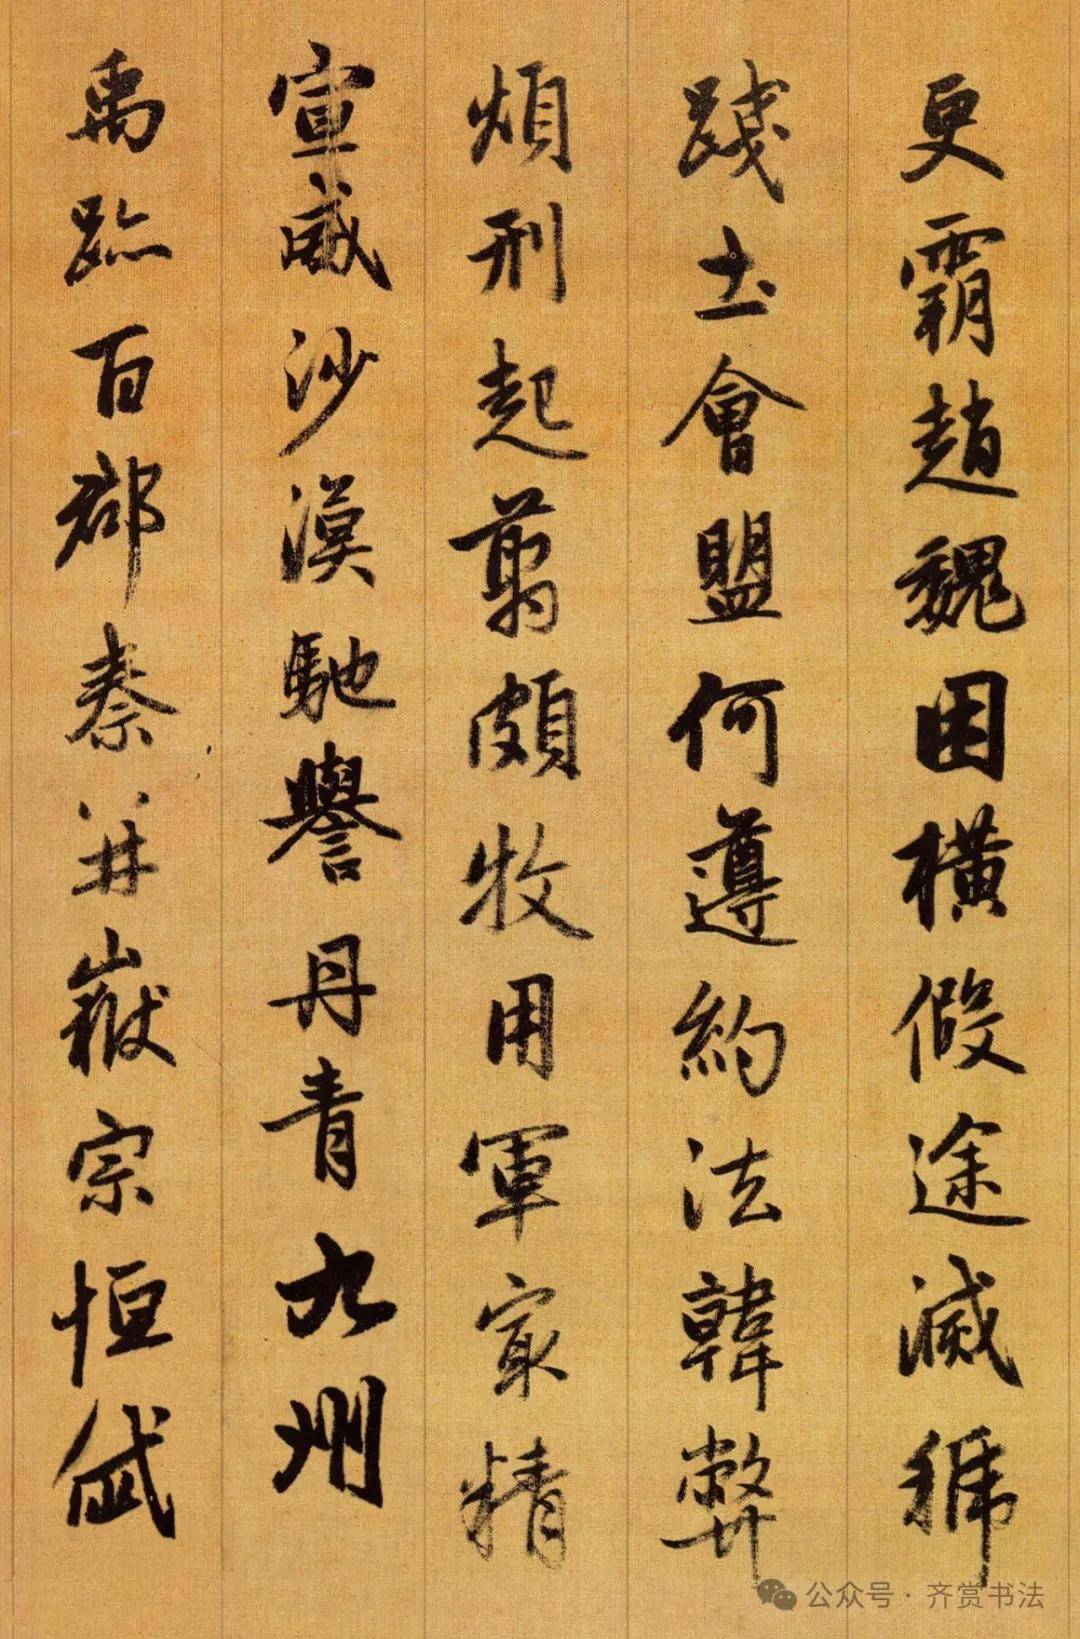 更霸趙魏困橫假途滅虢
踐土會盟何遵約法韓弊
煩刑起翦頗牧用軍㝡精
宣威沙漠馳譽丹青九州
禹跡百郡秦并嶽宗恒岱
公众号 · 齐赏书法